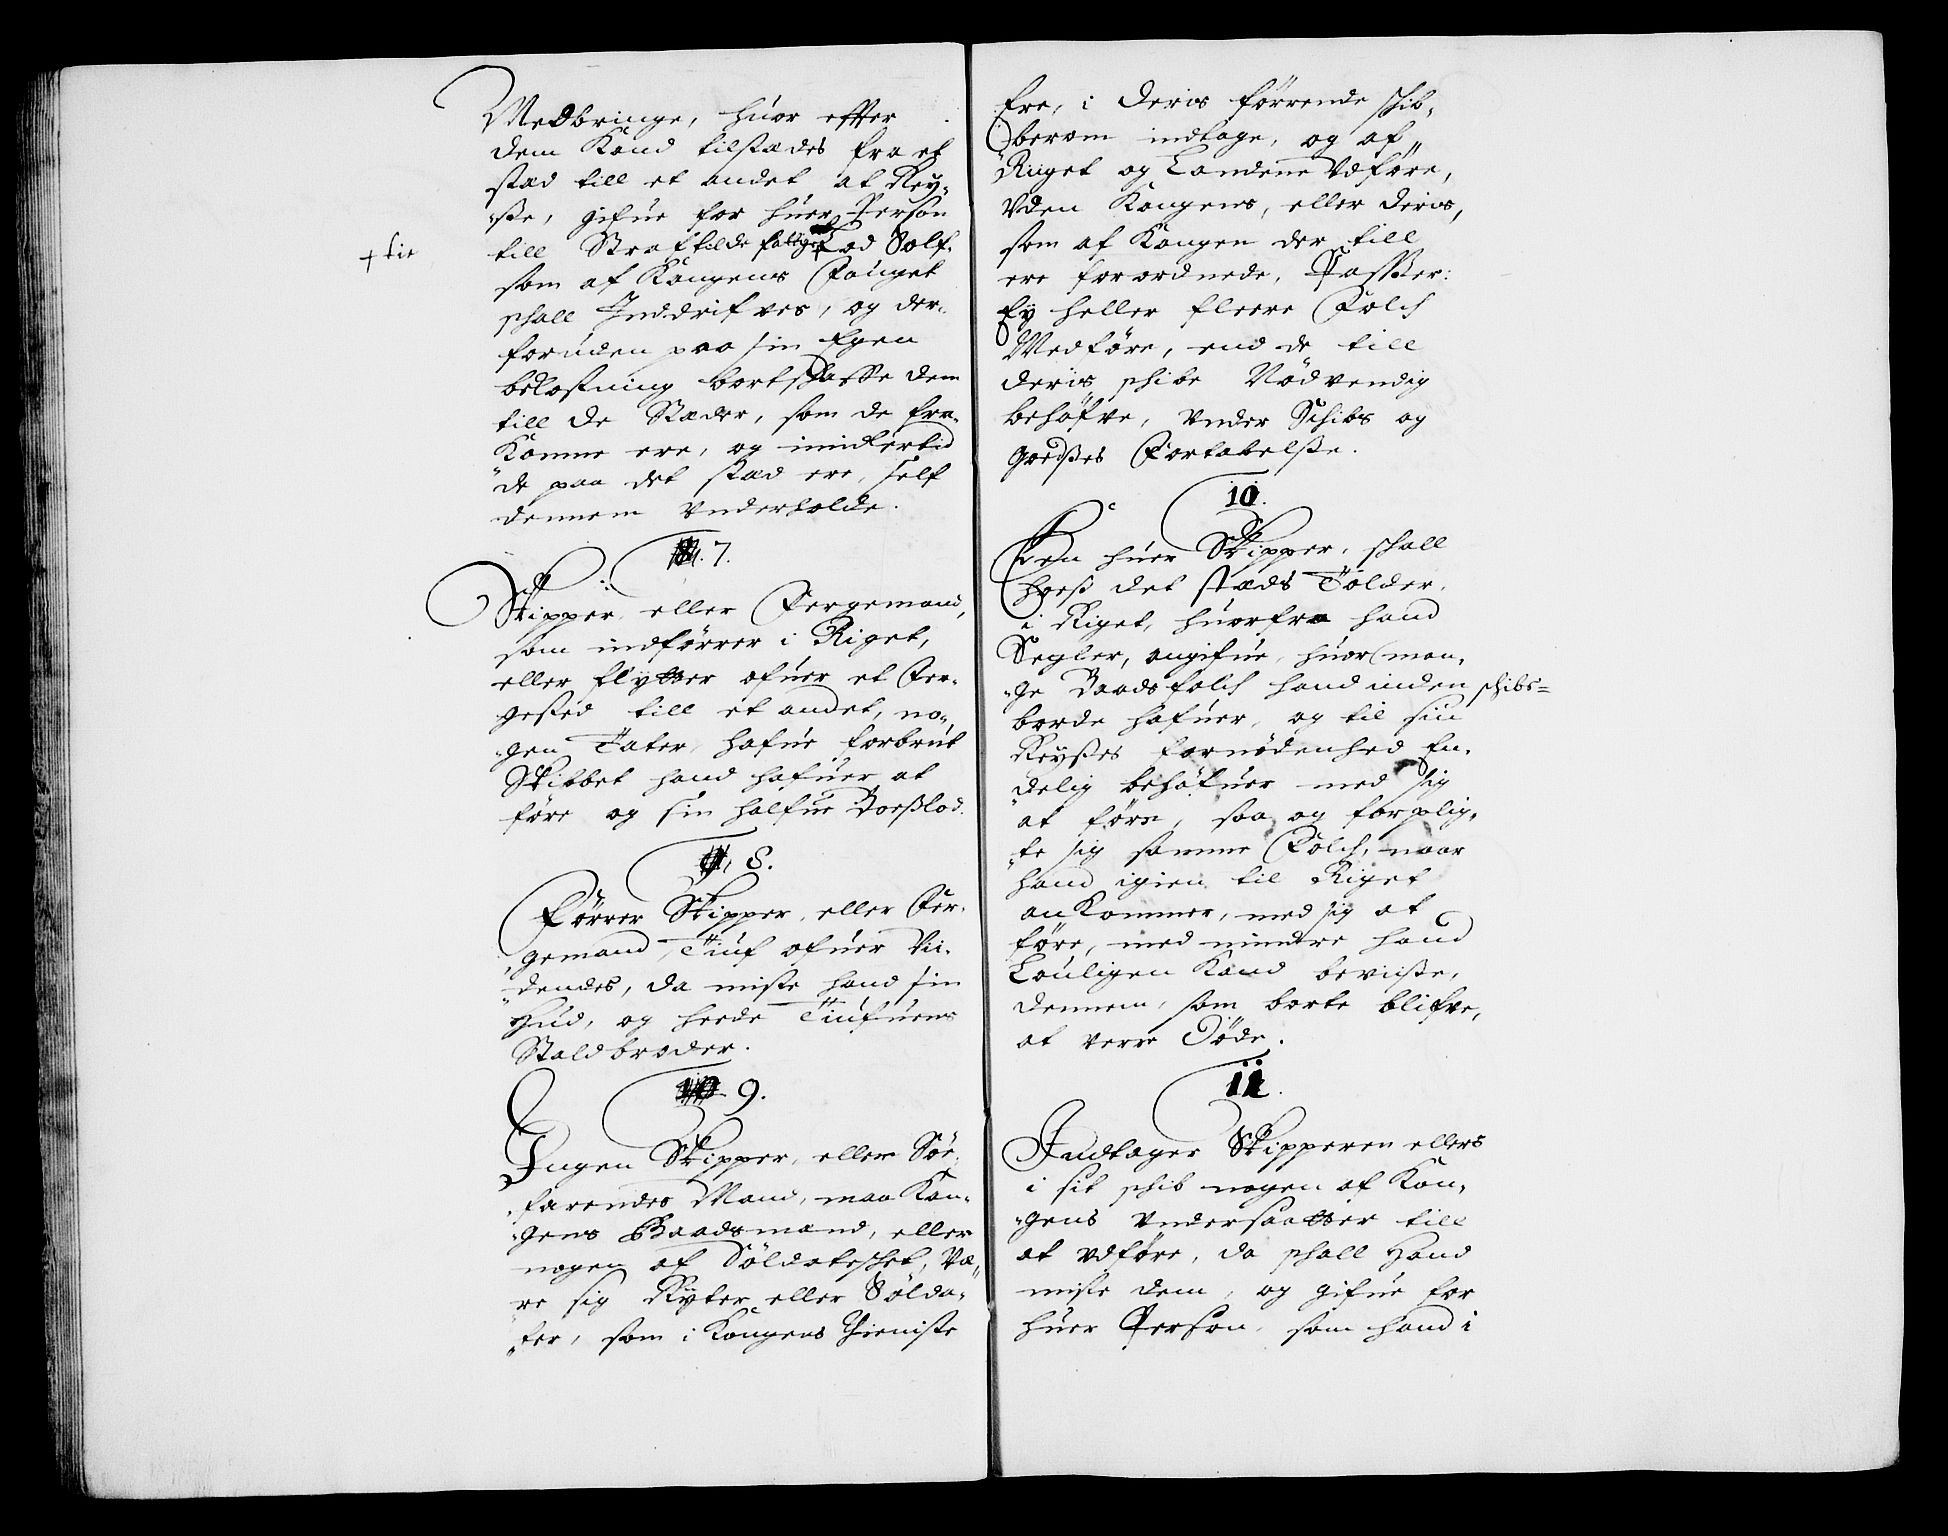 Medbringe, huor efter
dem Kand tilstædes fra et
stæd till et andet at Rey-
-ße, gifue for huer Person
+ tie
till Straf tilde fattige Lod Sølf,
som af Kongens Fouget
schall Inddrifves, og der-
foruden paa sin Egen
bekostning bortschaffe dem
till de Stæder, som de fra-
Komne ere, og imidlertid
de paa det stæd ere, self
dennem Vnderholde.
7.
Skipper eller Fergemand,
som indførrer i Riget,
eller flytter ofuer et Fer-
-gested till et andet, no-
-gen Tater, hafue forbrut
Skibbet hand hafuer at
føre og sin halfue Boeßlod.
8.
Førrer Skipper, eller Fer-
-gemand, Tiuf ofuer Vii-
-dendes, da miste hand sin
Hud, og heede Tiufuens
Staldbroder.
9.
Ingen Skipper, eller Søe-
-farendes Mand, maa Kon-
-gens Baadsmænd, eller
nogen af Soldateschet, Væ-
re sig Rytter eller Solda-
-ter, som i Kongens Thieniste
Ere, i deris førrende schib-
berom indtage, og af
Riiget og Landene Vdføre,
Vden Kongens, eller deris,
som af Kongen der till
ere forordnede, Passer:
Ey heller fleere Folch
Medføre, end de till
deris schibe Nødvendig
behøfve, Vnder Schibs og
goedßes Fortabelße.
10.
Een huer Skipper, schall
hoeß det stæds Tolder,
i Riget, huorfra hand
Segler, angifue, huor man-
-ge Baadsfolch hand inden schibs=
borde hafuer, og til sin
Reyßes fornødenhed En-
delig behøfuer med sig
at føre, saa og forplig-
-te sig samme Folch, naar
hand igien til Riget
anKommer, med sig at
føre, med mindre hand
Louligen Kand beviiße,
dennem, som borte blifve,
at vere Døde.
11.
Indtager Skipperen ellers
i sit schib nogen af Kon-
-gens Vndersaatter till
at Vdføre, da schall Hand
miste dem, og gifue for
huer Person, som hand i